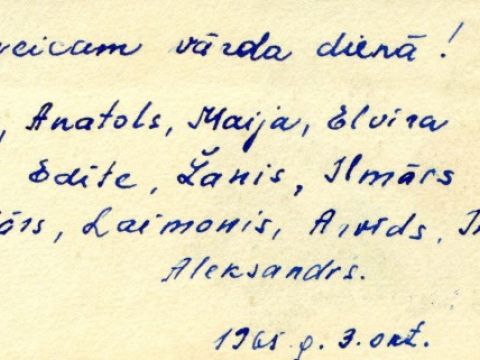 veicam vārda dienā!
, Anatols, Maija, Elvira
Edīte, Žanis, Ilmārs
Laimonis, Arvīds,
Aleksandrs.
1965 g. 3. okt.